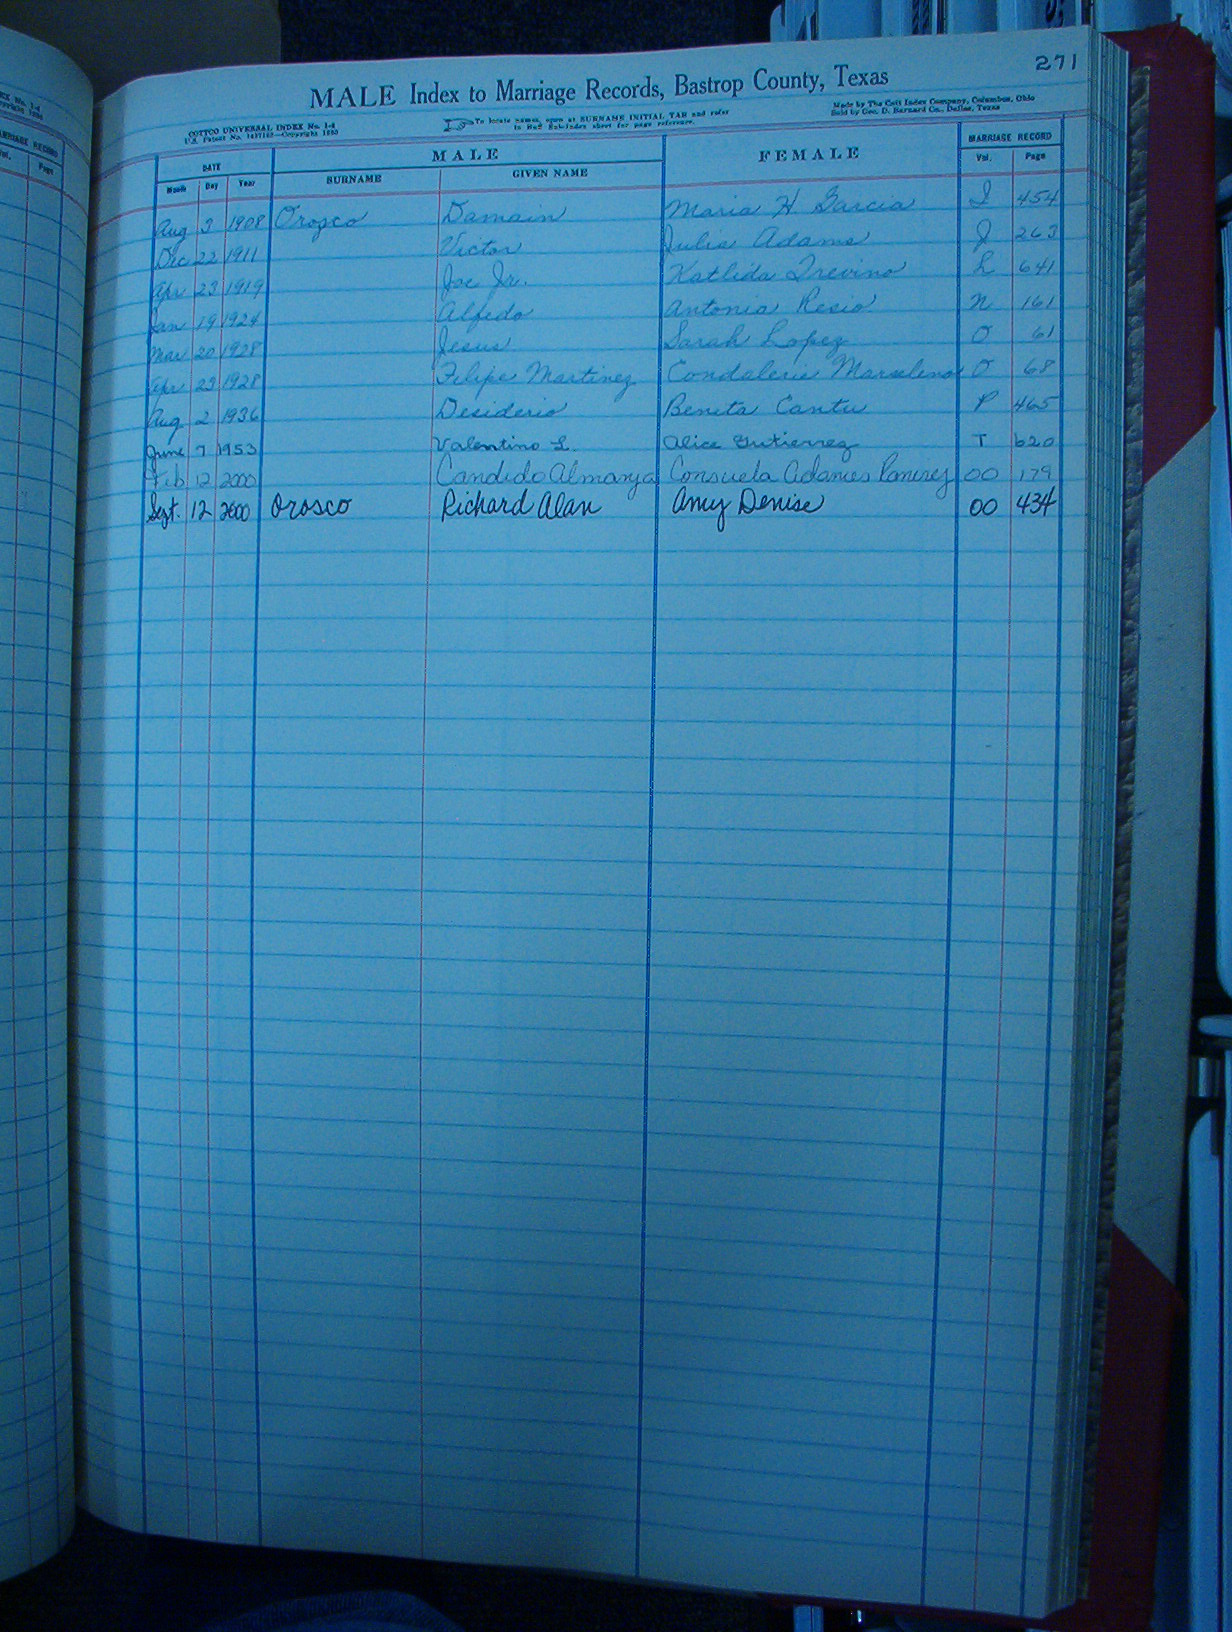 271
MALE Index to Marriage Records, Bastrop County, Texas
COTTCO UNIVERSAL INDEX No. 1-4
To locate names, open at SURNAME INITIAL TAB and refer
Made by The Cott Index Company, Columbus, Ohio
Sold by Geo. D. Barnard Co., Dallas, Texas
DATE MALE FEMALE MARRIAGE RECORD
Month Day Year SURNAME GIVEN NAME Vol. Page
Aug 3 1908 Orosco Damain Maria H Garcia I 454
Dec 22 1911 Victor Julia Adams J 263
Apr 23 1919 Joe Jr. Katlida Trevino L 641
Jan 19 1924 Alfedo Antonia Resio N 161
Mar 20 1928 Jesus Sarah Lopez O 61
Apr 23 1928 Filipe Martinez Condalerie Marselino O 68
Aug 2 1936 Desiderio Benita Cantu P 465
June 7 1953 Valentino L. Alice Gutierrez T 620
Feb 12 2000 Candido Almanza Consuela Adames Ramirez OO 179
Sept. 12 2000 Orosco Richard Alan Amy Denise OO 434
MARRIAGE RECORD
Vol. Page